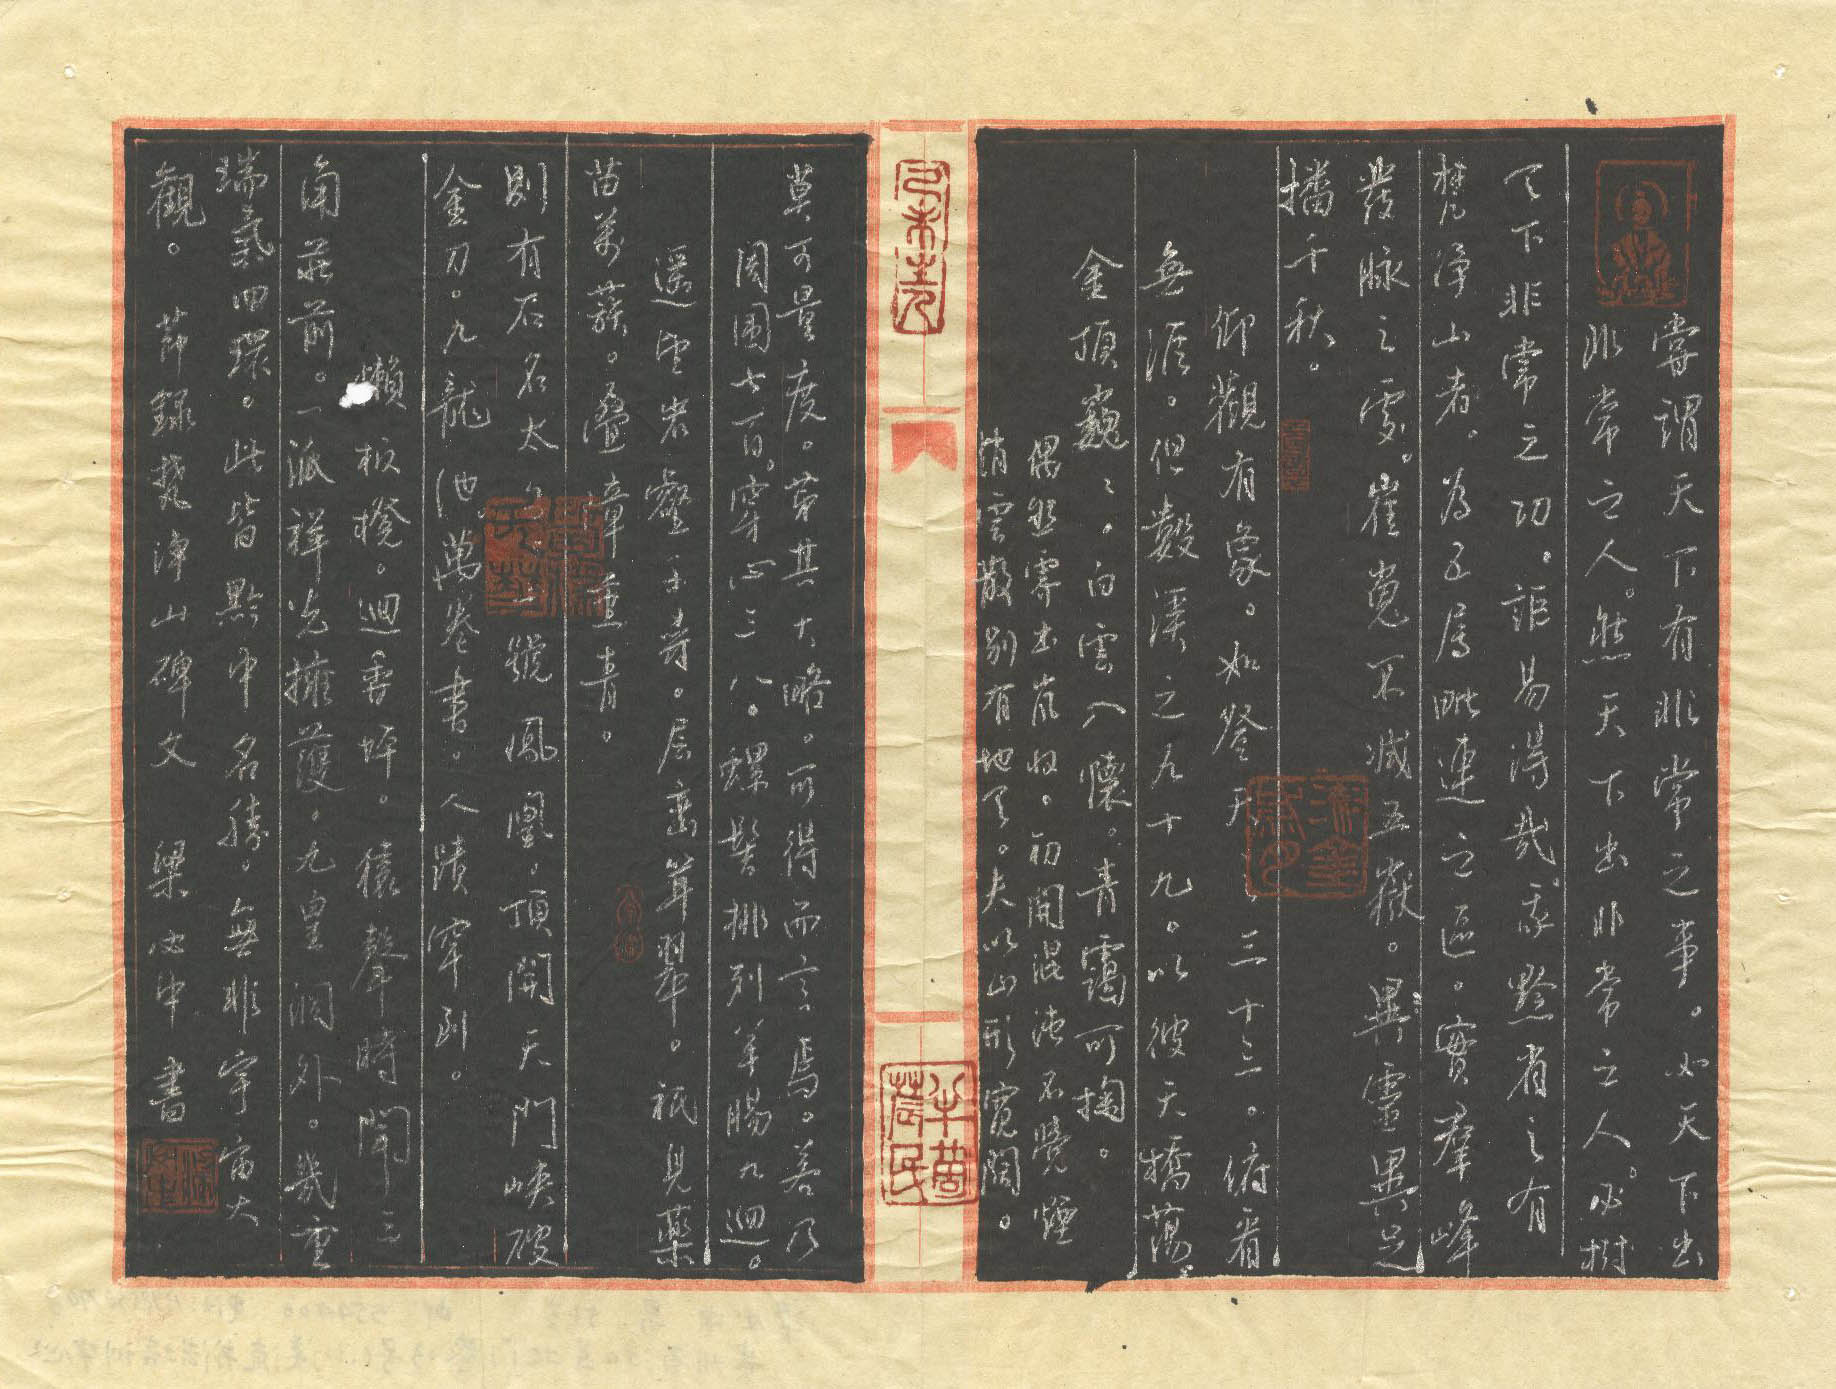 嘗謂天下有非常之事。必天下出
非常之人。然天下出非常之人。必樹
天下非常之功。詎易得哉。我黔省之有
梵淨山者。為五属毗連之區。實羣峰
發脉之處。崔嵬不減五嶽。異靈異足
播千秋。
仰觀有象。如登天 三十三。俯看
無涯。但數溪之九十九。以彼天橋蕩〻
金頂巍〻。白雲入懷。青靄可掬。
偶然雾出嵐收。初開混沌不覺煙
消雲散別有地天。夫以山形寬闊。
莫可量度。第其大略。可得而言焉。若乃
周围七百。穿心三八。螺髻排列羊腸九迴。
遥望岩壑千尋。层峦耸翠。祇見藥
苗萬蔟。疊嶂重青。
則有石名太子 號鳳凰。頂開天門峽破
金刀。九龍池萬卷書。人蹟罕到。
懶板凳。迴香坪。猿聲時聞三
角莊前。一派祥光擁護。九皇洞外。幾重
瑞氣四環。此皆黔中名勝。無非宇宙大
觀。節錄梵淨山碑文 梁必中 書
半畝農民